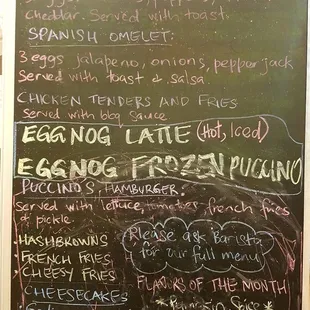 cheddar. Served with toast.
SPANISH OMELET:
3 eggs jalapeno, onions, pepper jack
Served with toast & salsa.
CHICKEN TENDERS AND FRIES
Served with bbq sauce
EGGNOG LATTE (Hot, Iced)
EGGNOG FROZEN PUCCINO
PUCCINO'S HAMBURGER:
Served with lettuce, tomatoes, french fries
& pickle.
HASHBROWNS
FRENCH FRIES,
CHEESY FRIES
Please ask Barista
for our full menu
CHEESECAKES
FLAVORS OF THE MONTH
*Pumpkin Spice*